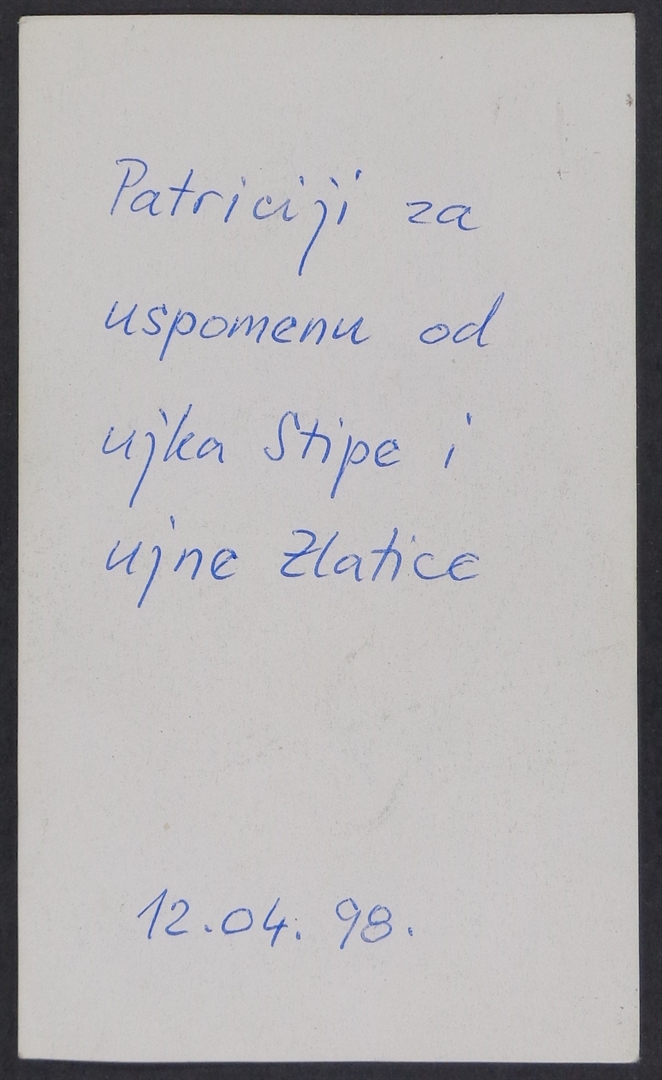 Patriciji za
uspomenu od
ujka Stipe i
ujne Zlatice
12.04. 98.